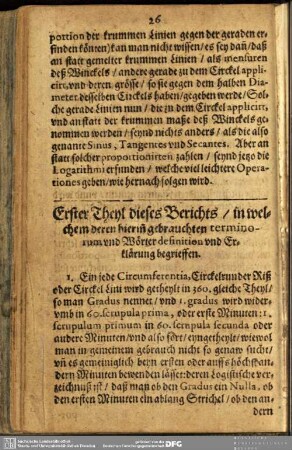 26
portion der krummen Linien gegen der geraden er-
finden können) kan man nicht wissen / es sey dañ / daß
an statt gemelter krummen Linien / als mensuren
deß Winckels / andere gerade zu dem Circkel appli-
cirt, vnd deren grösse / so sie gegen dem halben Dia-
meter desselben Circkels haben / gegeben werde / Sol-
che gerade Linien nun / die zu dem Circkel applicirt,
vnd an statt der krummen maße deß Winckels ge-
nommen werden / seynd nichts anders / als die also
genante Sinus, Tangentes vnd Secantes. Aber an
statt solcher proportionirten zahlen / seynd jetzo die
Logarithmi erfunden / welche viel leichtere Opera-
tiones geben / wie hernach folgen wird.
Erster Theyl dieses Berichts / in wel-
chem deren hierin̄ gebrauchten termino-
rum vnd Wörter definition vnd Er-
klärung begrieffen.
1. Ein jede Circumferentia, Circkelrunder Riß
oder Circkel Lini wird getheylt in 360. gleiche Theyl /
so man Gradus nennet / vnd 1. gradus wird wider-
vmb in 60. scrupula prima, oder erste Minuten: 1.
scrupulum primum in 60. scrupula secunda oder
andere Minuten / vnd also fort / eyngetheylt / wiewol
man in gemeinem gebrauch nicht so genaw sucht /
vñ es gemeiniglich beyn ersten oder auffs höchst an-
dern Minuten bewenden lässet: deren Logistische ver-
zeichnuß ist / daß man ob den Gradus ein Nulla, ob
den ersten Minuten ein ablang Strichel / ob den an-
dern
DFG